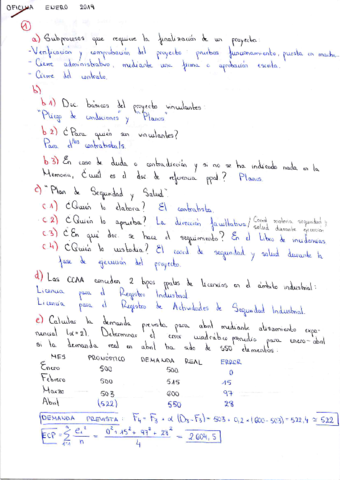 OFICINA ENERO 2014
①
a) Subprocesos que requiere la finalización de un proyecto.
- Verificación y comprobación del proyecto: pruebas funcionamiento, puesta en marcha.
- Cierre administrativo, mediante una firma o aprobación escrita.
- Cierre del contrato.
b)
b1) Doc. básicos del proyecto vinculantes
"Pliego de condiciones" y "Planos"
b2) ¿Para quién son vinculantes?
Para el contratista/s.
b3) En caso de duda o contradicción y si no se ha indicado nada en la
Memoria, ¿cuál es el doc. de referencia ppal? Planos.
c) "Plan de Seguridad y Salud"
c1) ¿Quién lo elabora? El contratista.
c2) ¿Quién lo aprueba? La dirección facultativa/Coord. materia seguridad y
salud durante ejecución
c3) ¿En qué doc. se hace el seguimiento? En el Libro de incidencias.
c4) ¿Quién lo custodia? El coord. de seguridad y salud durante la
fase de ejecución del proyecto.
d) Las CCAA conceden 2 tipos grales de licencias en el ámbito industrial:
Licencia para el Registro Industrial
Licencia para el Registro de Actividades de Seguridad Industrial.
e) Calcular la demanda prevista para abril mediante alisamiento expo-
nencial (α=2). Determinar el error cuadrático promedio para enero-abril
si la demanda real en abril ha sido de 550 elementos.
MES PRONÓSTICO DEMANDA REAL ERROR
Enero 500 500 0
Febrero 500 515 15
Marzo 503 600 97
Abril (522) 550 28
DEMANDA PREVISTA: F₄ = F₃ + α (D₃-F₃) = 503 + 0,2 × (600-503) = 522,4 ≈ 522
ECP = Σ eᵢ²/n = (0² + 15² + 97² + 28²)/4 = 2604,5